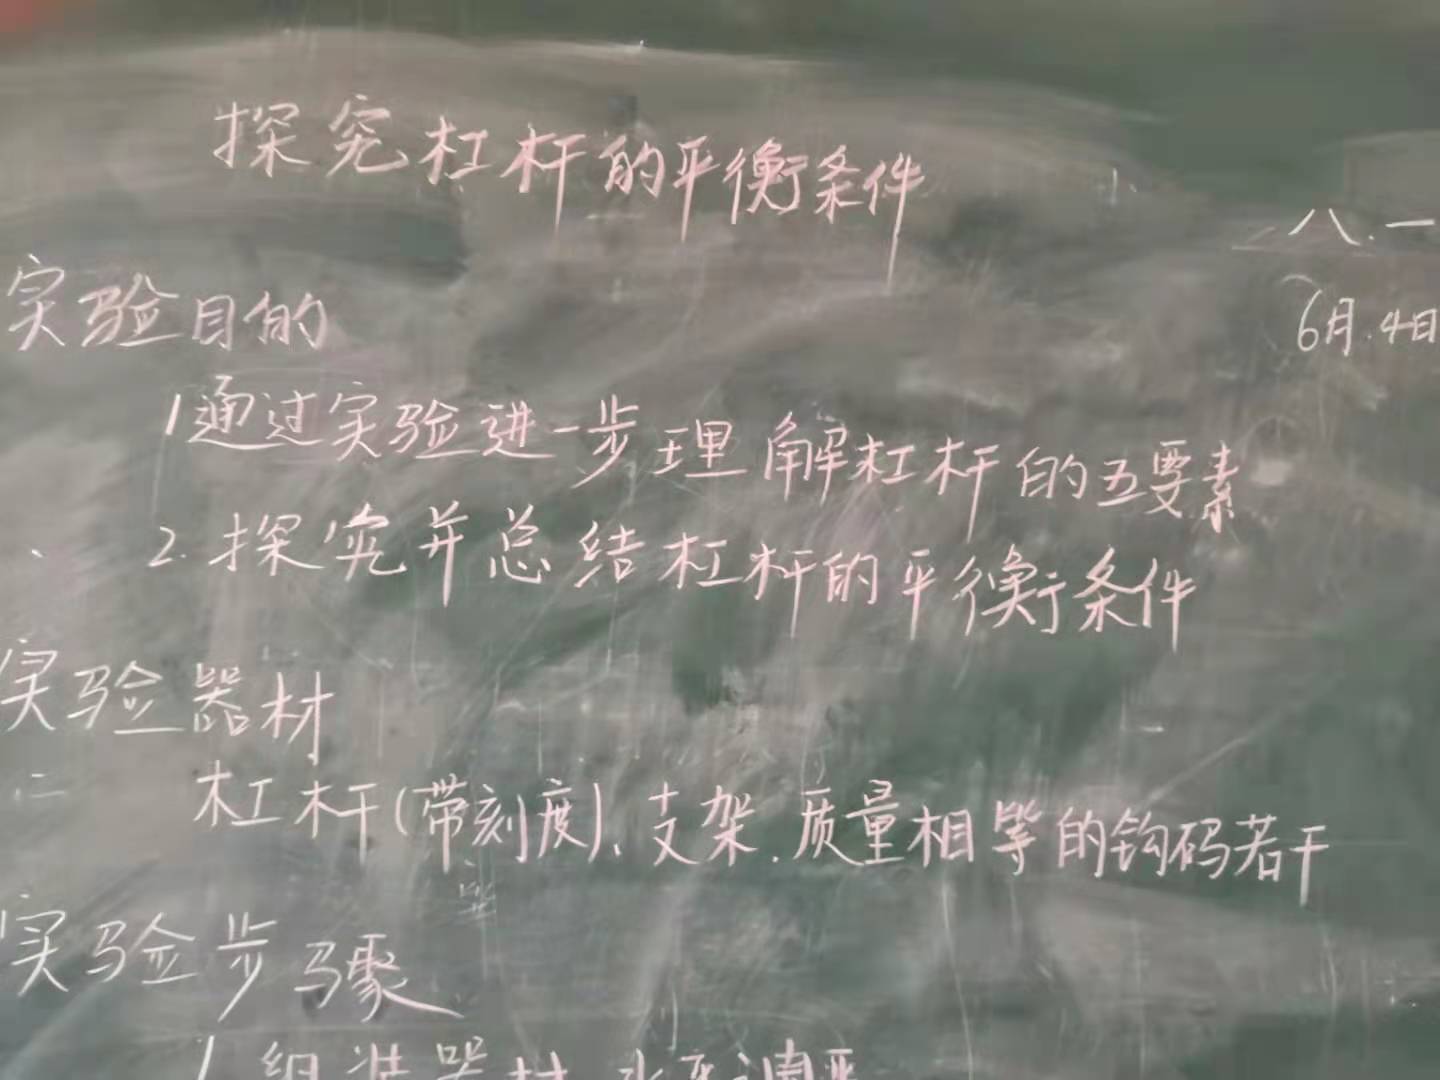 探究杠杆的平衡条件
八.一
6月.4日
实验目的
1通过实验进一步理解杠杆的五要素
2.探究并总结杠杆的平衡条件
实验器材
杠杆(带刻度)、支架.质量相等的钩码若干
实验步骤
1 组装器材 水平调平